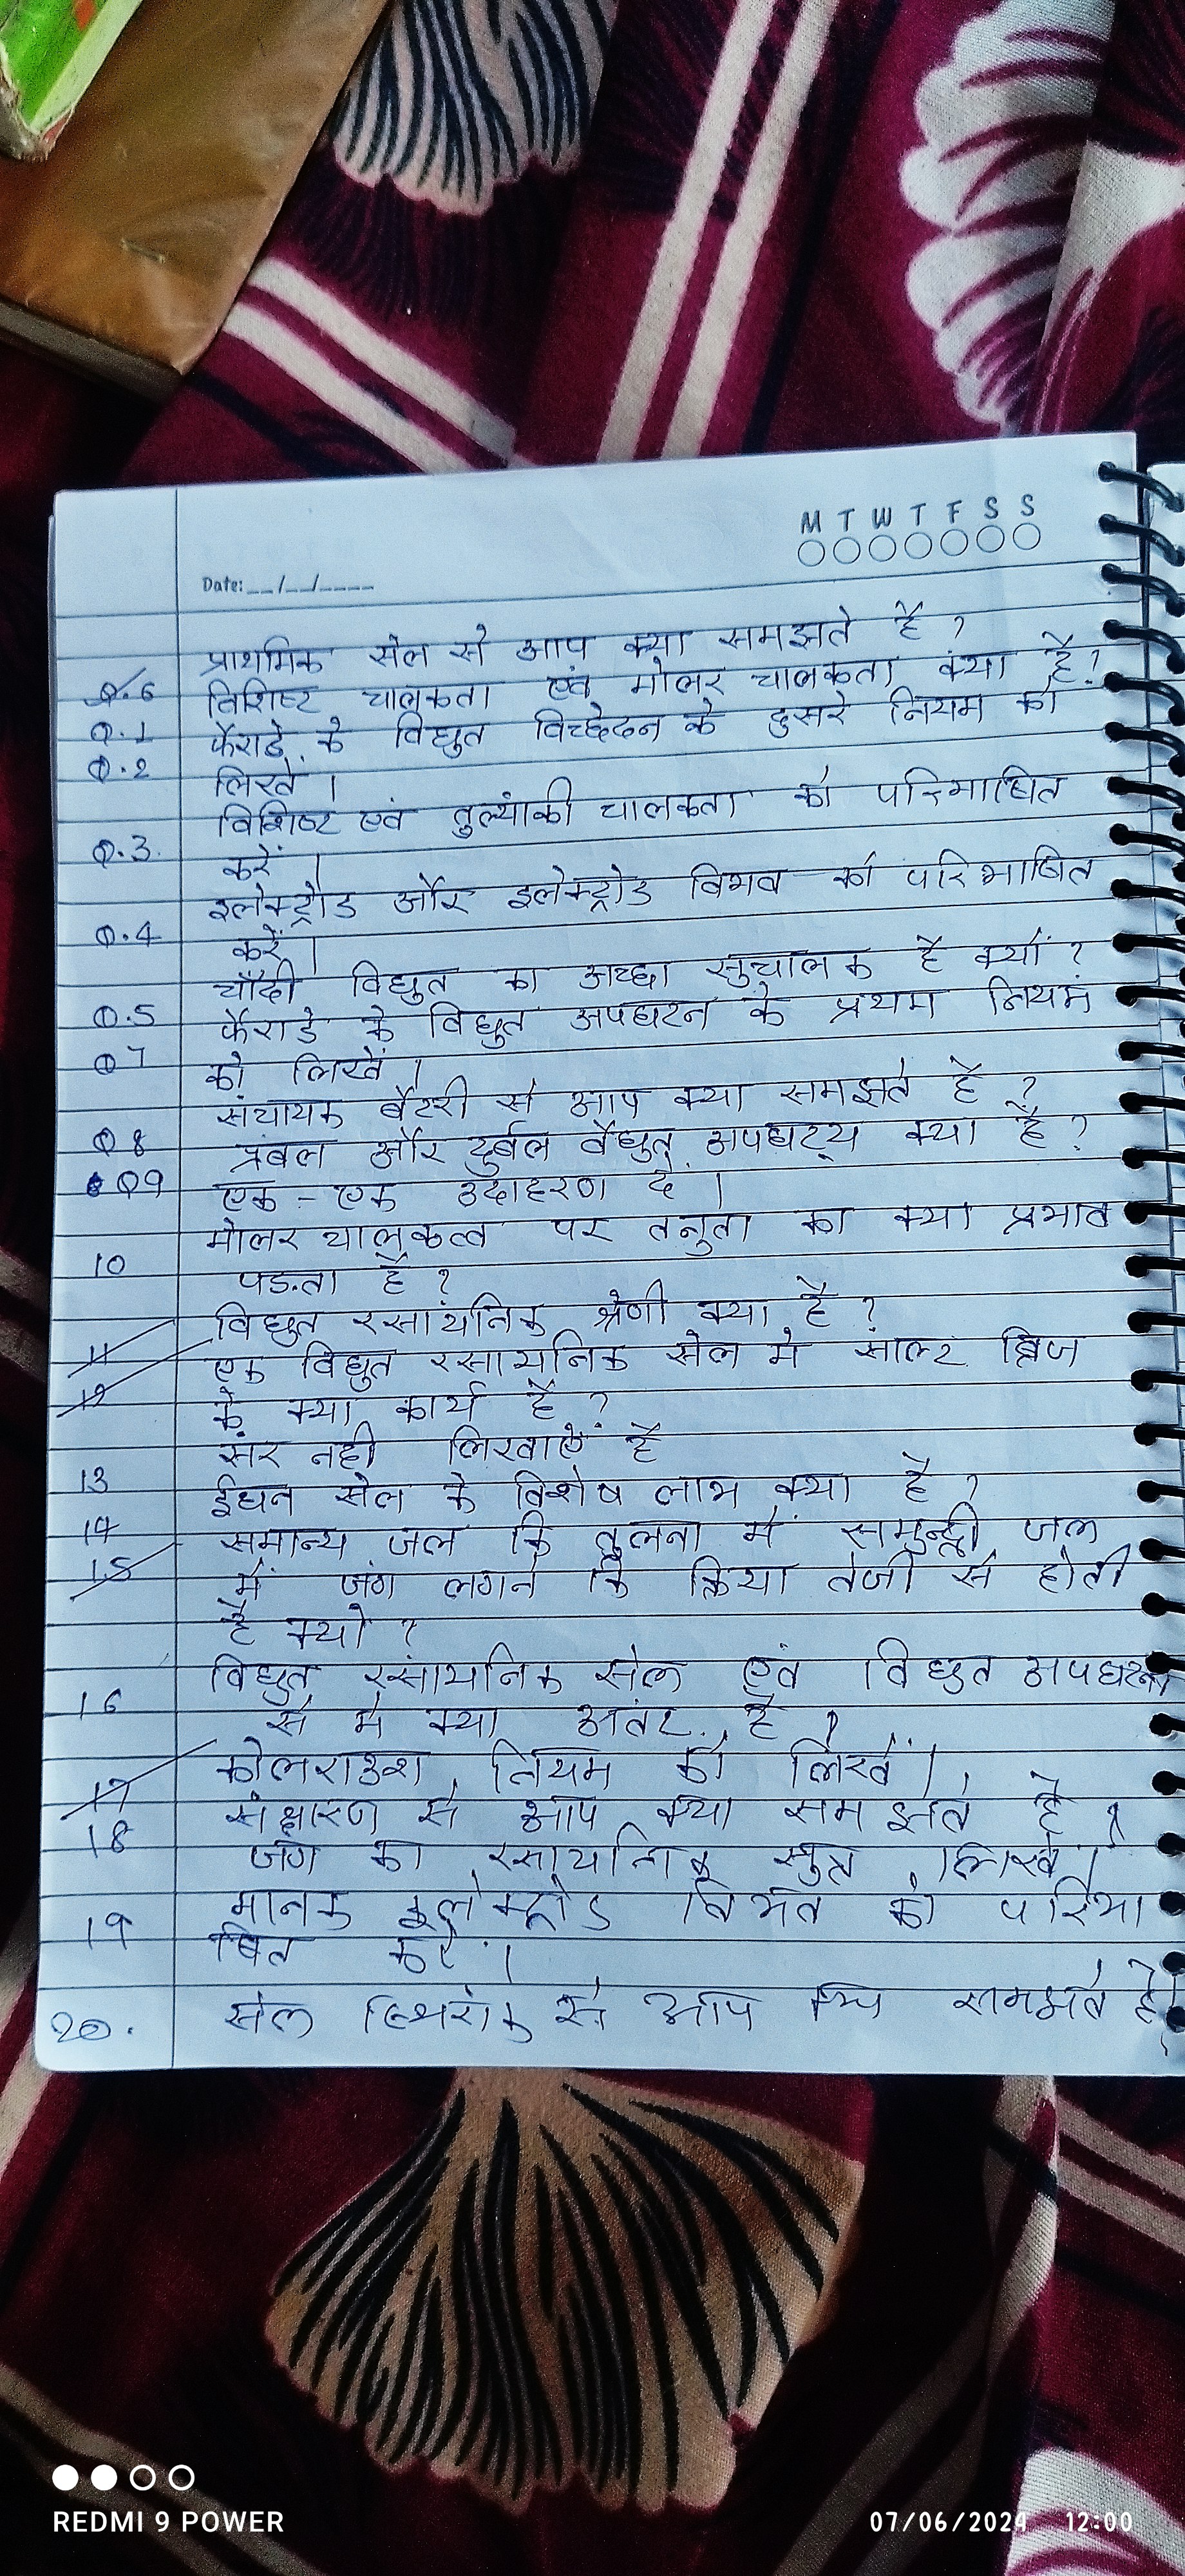 M T W T F S S
Date: __/__/____
प्राथमिक सेल से आप क्या समझते है ?
Q.6 विशिष्ट चालकता एवं मोलर चालकता क्या है ?
Q.1 फैराडे के विद्युत विच्छेदन के दुसरे नियम को
Q.2 लिखे ।
विशिष्ट एवं तुल्यांकी चालकता को परिभाषित
Q.3. करें ।
इलेक्ट्रोड और इलेक्ट्रोड विभव को परिभाषित
Q.4 करें ।
चाँदी विद्युत का अच्छा सुचालक है क्यों ?
Q.5 फैराडे के विद्युत अपघटन के प्रथम नियम
Q7 को लिखें ।
संचायक बैटरी से आप क्या समझते है ?
Q8 प्रबल और दुर्बल वैद्युत अपघट्य क्या है ?
Q9 एक - एक उदाहरण दे ।
मोलर चालकत्व पर तनुता का क्या प्रभाव
10 पड़ता है ?
विद्युत रसायनिक श्रेणी क्या है ?
11 एक विद्युत रसायनिक सेल मे साल्ट ब्रिज
12 के क्या कार्य है ?
सर नही लिखाऐं है
13 ईधन सेल के विशेष लाभ क्या है ?
14 समान्य जल कि तुलना में समुन्द्री जल
15 में जंग लगने कि क्रिया तेजी से होती
है क्यो ?
विद्युत रसायनिक सेल एवं विद्युत अपघटन
16 से मे क्या अंतर है ?
कोलराउश नियम को लिखें ।
17 संक्षारण से आप क्या समझते है ?
18 जंग का रसायनिक सुत्र लिखे ।
मानक इलेक्ट्रोड विभव को परिभा
19 षित करें ।
20. सेल स्थिरांक से आप क्या समझते है
REDMI 9 POWER
07/06/2024 12:00